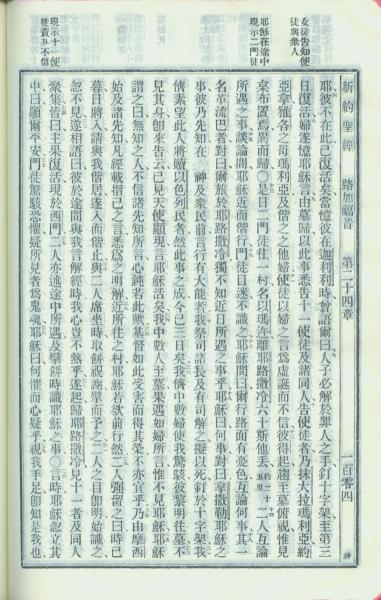 新約聖經 路加福音 第二十四章 一百零四
女徒告知使
徒與衆人
耶穌在途中
現示二門徒
現示十一使
徒責其不信
耶彼不在此已復活矣當憶彼在迦利利時曾語爾曰人子必解於罪人之手釘十字架至第三
日復活婦遂憶耶穌言由墓歸以此事悉告十一使徒及諸同人告使徒者乃抹大拉瑪利亞約
亞拿雅各之母瑪利亞及偕之之他婦使徒以婦之言爲虛誕而不信彼得起趨至墓俯視惟見
枲布置焉異而歸○是日二門徒往一村名以瑪迕離耶路撒冷六十斯他丟約二十五里二人互論
所遇之事談論間耶穌近而偕行門徒目迷不識之耶穌問曰爾行路面有憂色互論何事其一
名革流巴者對曰爾旅於耶路撒冷獨不知近日所遇之事乎耶穌曰何事對曰拿撒勒耶穌之
事彼乃先知在 神及衆民前言行有大能者我祭司諸長及有司解之擬以死釘於十字架我
儕素望此人將贖以色列民者然此事之成今已三日矣我儕中數婦使我驚駭彼黎明往墓不
見其身卽來告云已見天使顯現言耶穌活矣我中數人至墓果遇如婦所言惟不見耶穌耶穌
謂之曰無知之人不信諸先知所言心鈍若此歟基督如此受害而得其榮不亦宜乎乃由摩西
始及諸先知凡經載指己之言悉爲之明解近所往之村耶穌若欲前行然二人強留之曰時已
暮日將入請與我偕居遂入而偕止與二人席坐時取餅祝謝擘而予之二人之目卽明始識之
忽不見遂相語曰彼於途間與我言解經時我心豈不熱乎遂起歸耶路撒冷見十一者及同人
聚集皆曰主果復活現於西門二人亦述途中所遇及擘餅時識耶穌之事○言時耶穌忽立其
中曰願爾平安門徒驚駭恐懼疑所見者爲鬼魂耶穌曰何懼而心疑乎視我手足卽知是我也